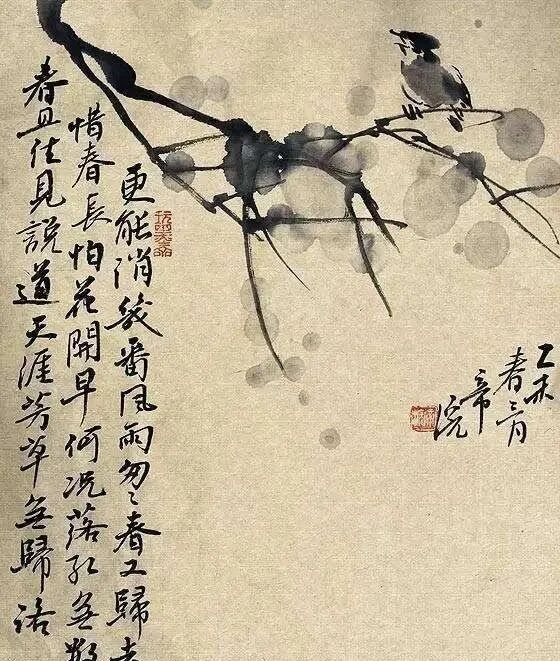 更能消幾番風雨匆匆春又歸去
惜春長怕花開早何況落紅無數
春且住見說道天涯芳草無歸路
乙未
春三月